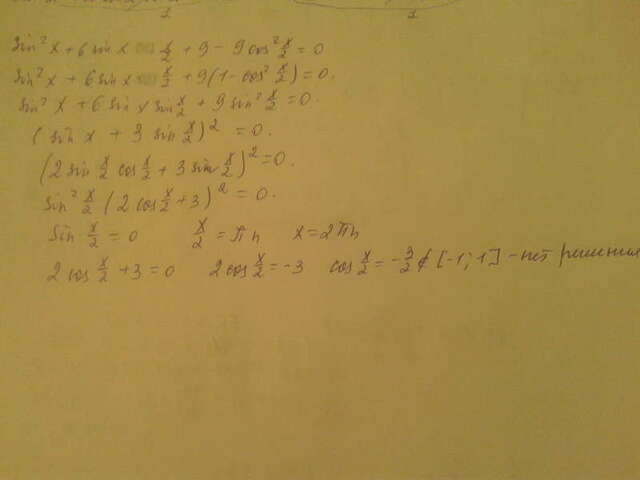 1 1
sin² x + 6 sin x x/2 + 9 - 9cos² x/2 = 0
sin² x + 6 sin x x/2 + 9(1 - cos² x/2) = 0.
sin² x + 6 sin x sin x/2 + 9 sin² x/2 = 0.
(sin x + 3 sin x/2)² = 0.
(2 sin x/2 cos x/2 + 3 sin x/2)² = 0.
sin² x/2 (2 cos x/2 + 3)² = 0.
sin x/2 = 0 x/2 = πn x = 2πn
2 cos x/2 + 3 = 0 2cos x/2 = -3 cos x/2 = -3/2 ∉ [-1; 1] - нет решения